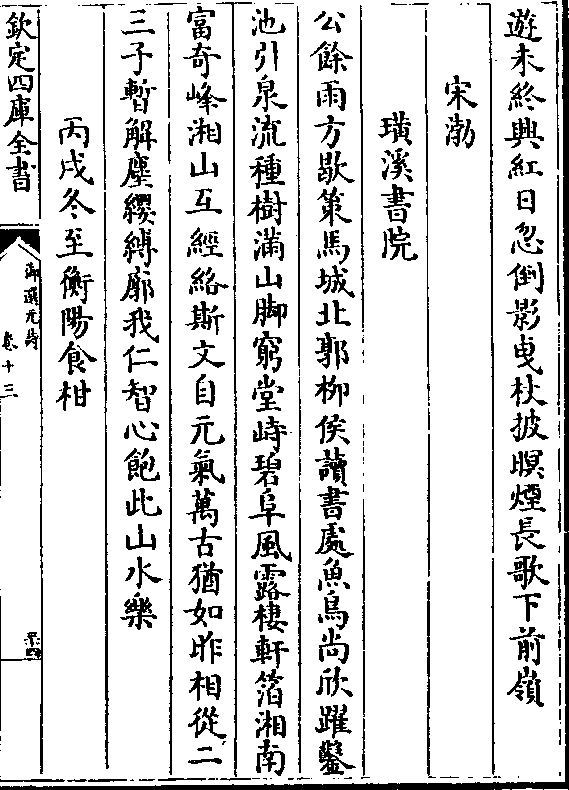 遊未終興紅日忽倒影曳杖披暝煙長歌下前嶺
宋渤
璜溪書院
公餘雨方歇策馬城北郭柳侯讀書處魚鳥尚欣躍鑿
池引泉流種樹滿山脚窮堂峙碧阜風露棲軒箔湘南
富奇峰湘山互經絡斯文自元氣萬古猶如昨相從二
三子暫解塵纓縛廓我仁智心飽此山水樂
丙戌冬至衡陽食柑
欽定四庫全書
御選元詩
卷十三